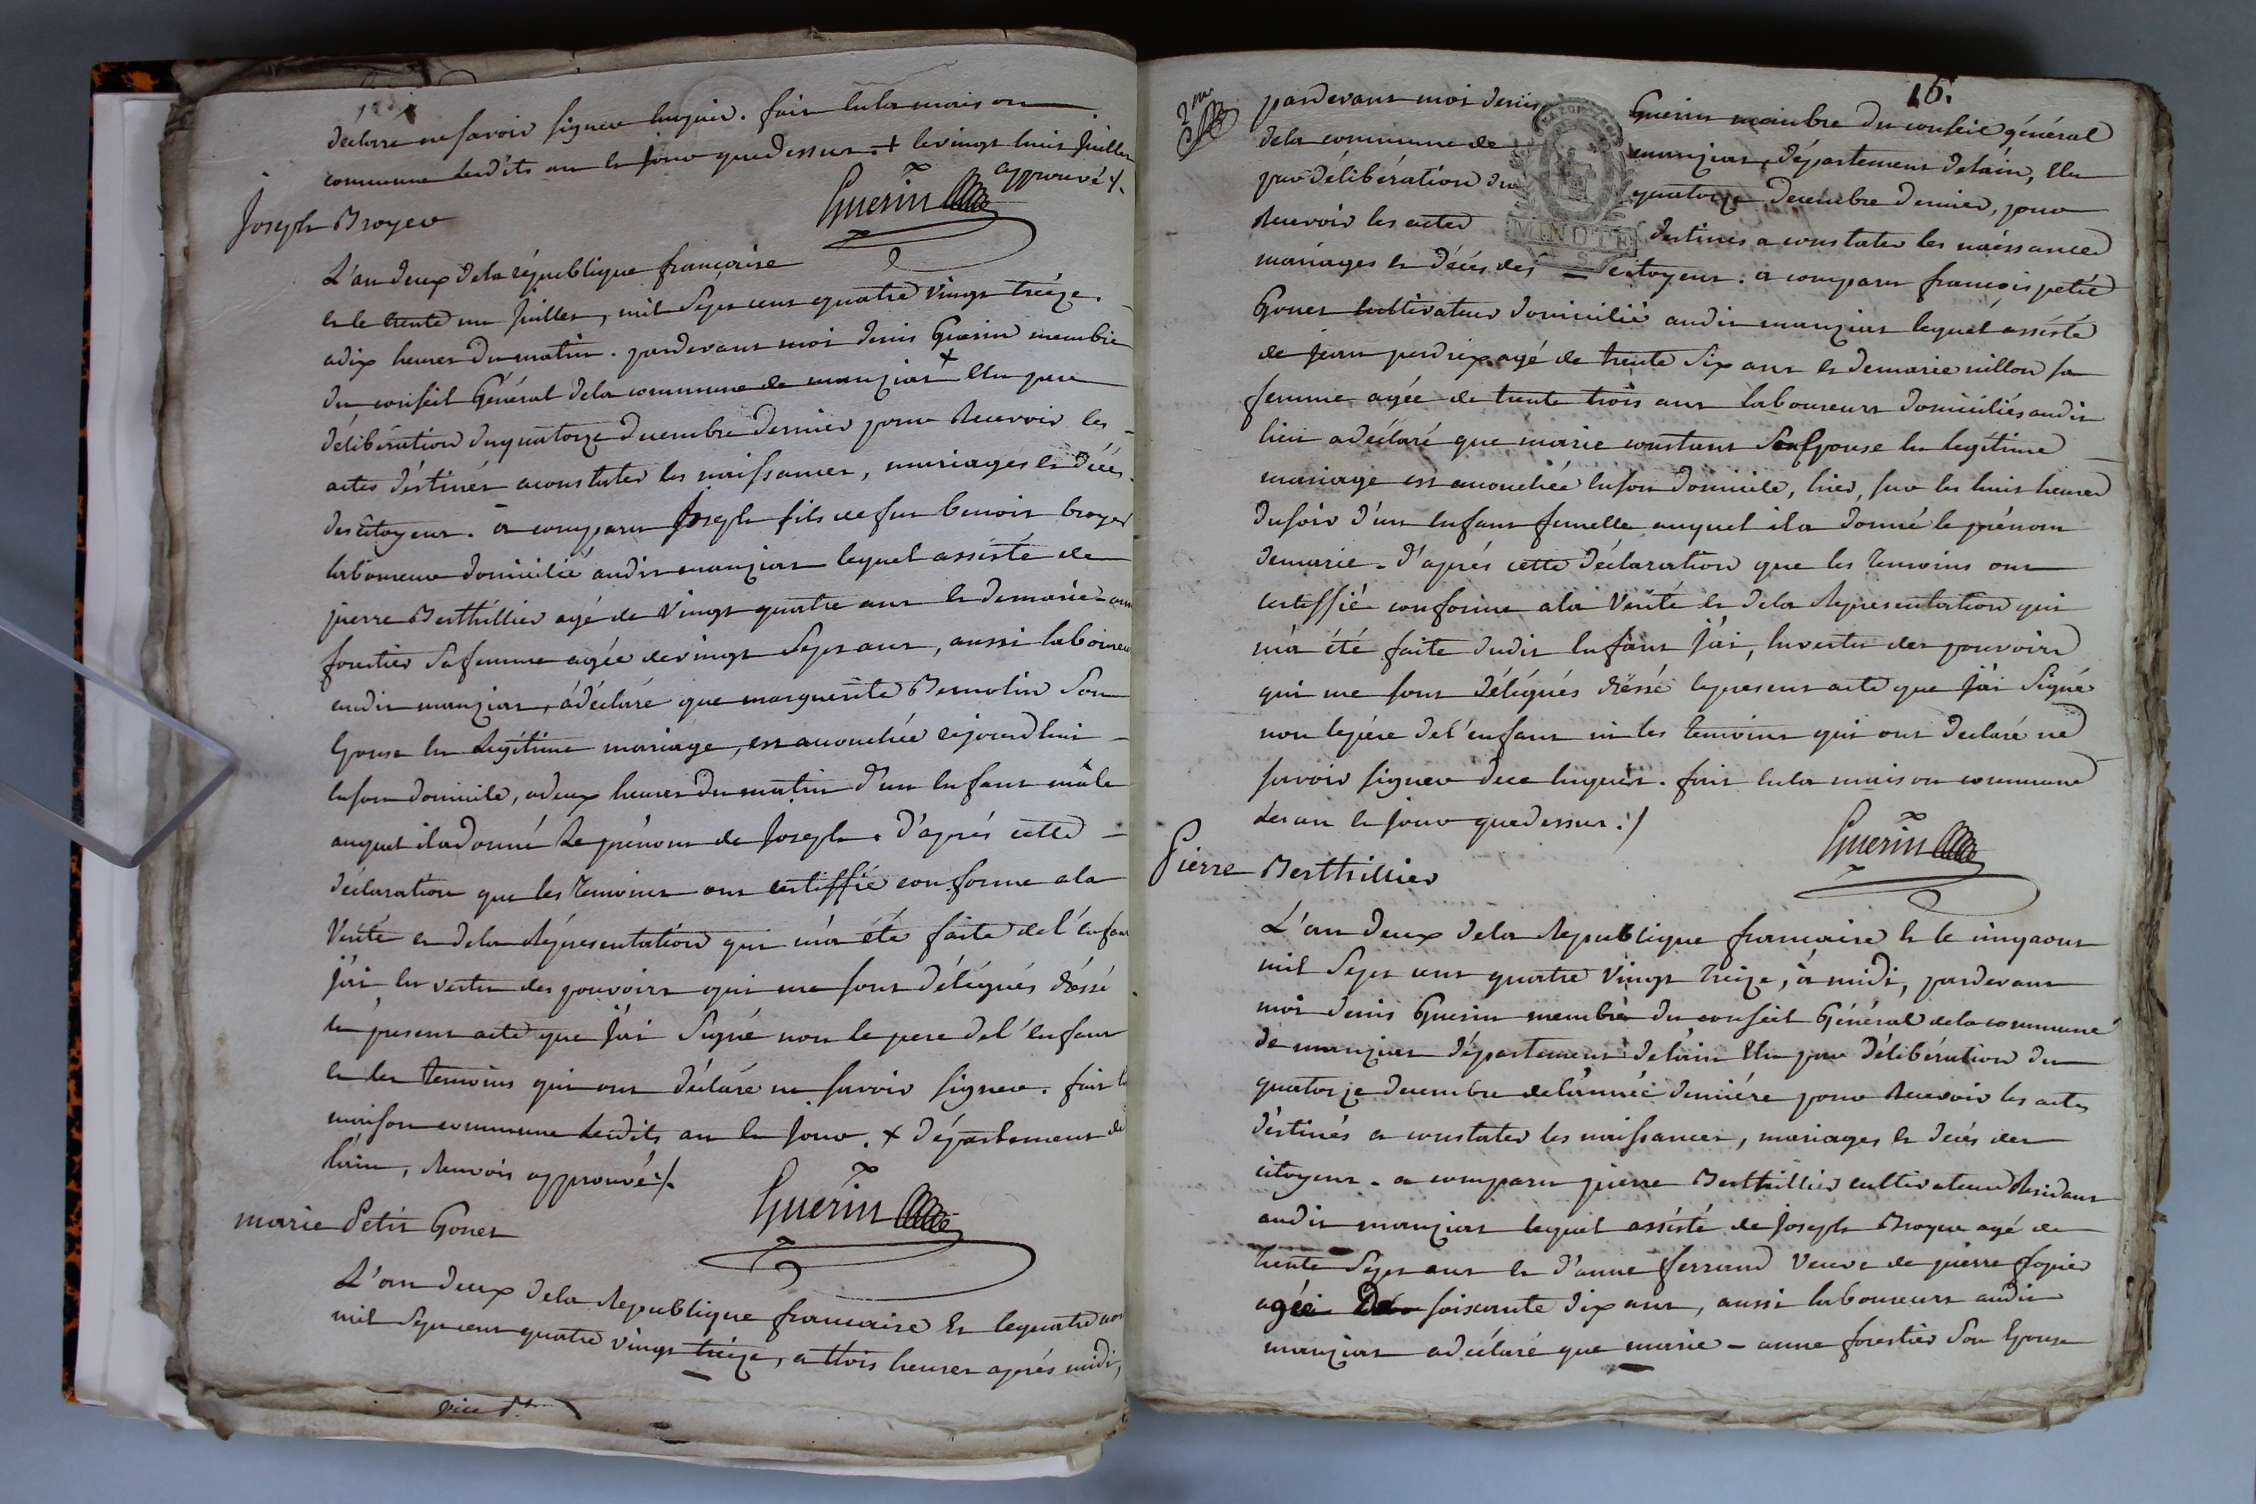 déclare ne savoir signer enquis. fait en la maison
commune lesdits an et jour que dessus. + le vingt huit juillet
approuvé ./.
Guerin
Joseph Broyer
L'an deux de la république françoise
et le trente un juillet, mil sept cent quatre vingt treize.
a dix heures du matin. pardevant moi denis Guerin membre
du conseil Général de la commune de manziat + Elu par
délibération du quatorze decembre dernier pour recevoir les
actes déstinés a constater les naissances, mariages et décés
des citoyens. a comparu Joseph fils de fut benoit broyer
laboureur domicilié audit manziat lequel assisté de
pierre Berthillier agé de vingt quatre ans et de marie-anne
forêtier sa femme agée de vingt sept ans, aussi laboureurs
audit manziat, a déclaré que marguerite Bernolin son
Epouse en legitime mariage, est accouchée cejourd'hui
en son domicile, a deux heures du matin d'un enfant mâle
auquel il a donné le prénom de Joseph. d'après cette
déclaration que les temoins ont certiffié conforme a la
vérité et de la représentation qui m'a été faite de l'enfant
j'ai en vertu des pouvoirs qui me sont délégués dréssé
le present acte que j'ai signé non le pere de l'enfant
et les temoins qui ont déclaré ne savoir signer. fait en la
maison commune lesdits an et jour. + département de
l'ain, renvois approuvé ./.
Guerin
marie Petit Gonet
L'an deux de la republique francaise et le quatre aout
mil sept cent quatre vingt treize, a trois heures après midi,
16.
2me
pardevant moi denis Guerin membre du conseil général
de la commune de manziat, département de l'ain, Elu
par délibération du quatorze decembre dernier, pour
recevoir les actes destinés a constater les naissances
MINUTE
mariages et décés des citoyens. a comparu françois petit
Gonet cultivateur domicilié audit manziat lequel assisté
de jean perdrix agé de trente six ans et de marie nillon sa
femme agée de trente trois ans laboureurs domiciliés audit
lieu a déclaré que marie constant son Epouse en legitime
mariage est accouchée en son domicile, hier, sur les huit heures
du soir d'un enfant femelle auquel il a donné le prénom
de marie. d'après cette déclaration que les temoins ont
certiffié conforme a la vérité et de la representation qui
m'a été faite dudit enfant j'ai, en vertu des pouvoirs
qui me sont délégués dréssé le present acte que j'ai signé
non le pére de l'enfant ni les temoins qui ont declaré ne
savoir signer de ce enquis. fait en la maison commune
les an et jour que dessus ./.
Guerin
Pierre Berthillier
L'an deux de la republique francaise et le cinq aout
mil sept cent quatre vingt treize, à midi, pardevant
moi denis Guerin membre du conseil Général de la commune
de manziat département de l'ain Elu par délibération du
quatorze decembre de l'année derniére pour recevoir les actes
déstinés a constater les naissances, mariages et décés des
citoyens. a comparu pierre Berthillier cultivateur résidant
audit manziat lequel assisté de Joseph Broyer agé de
trente sept ans et d'anne ferrand veuve de pierre
agée de soixante dix ans, aussi laboureurs audit
manziat a déclaré que marie-anne forestier son Epouse